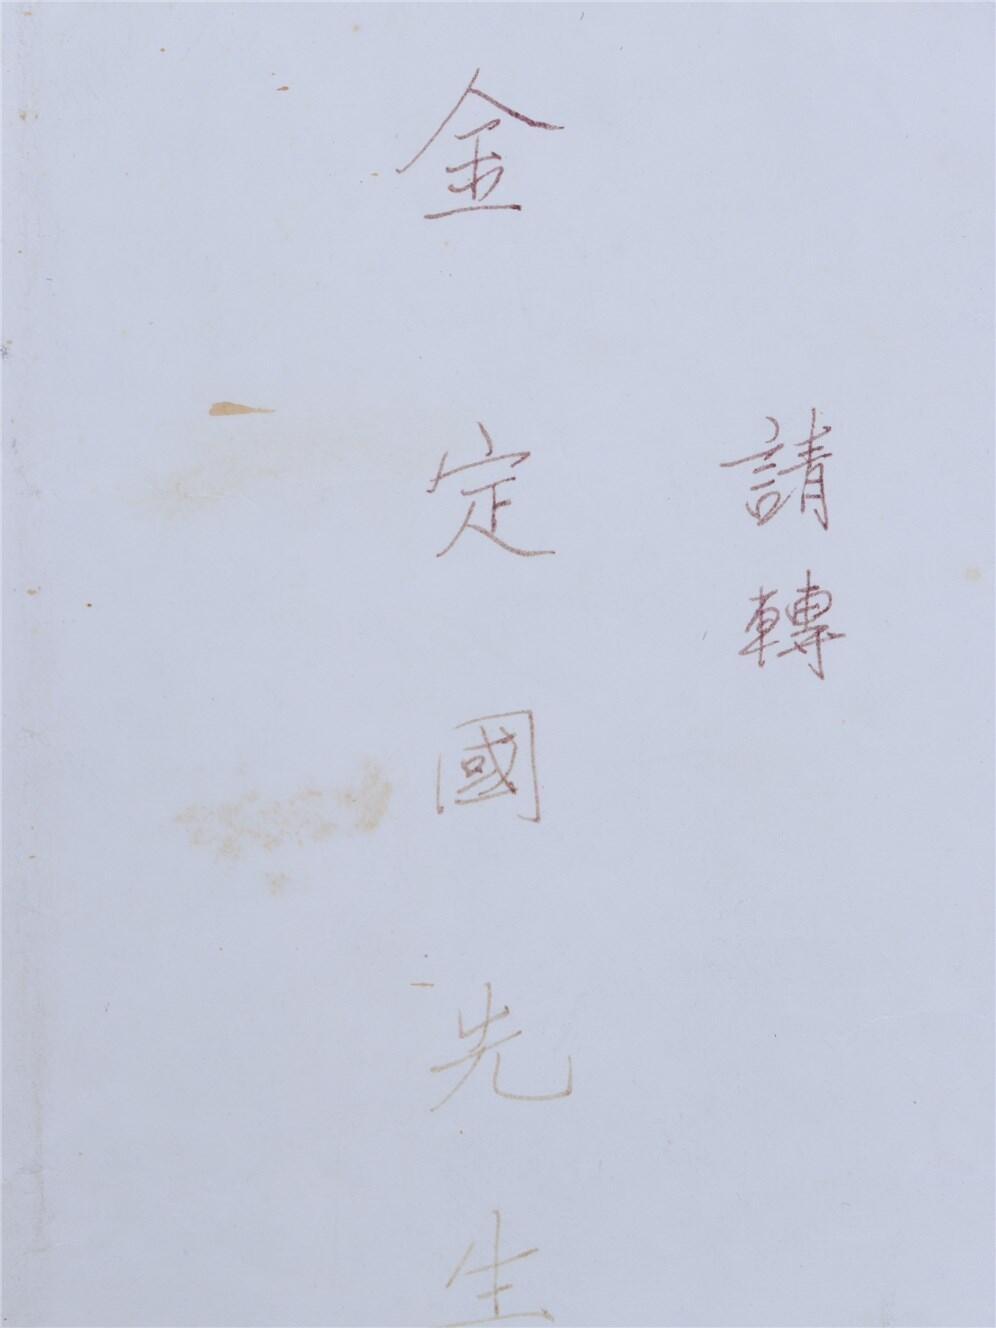 請轉
金定國先生